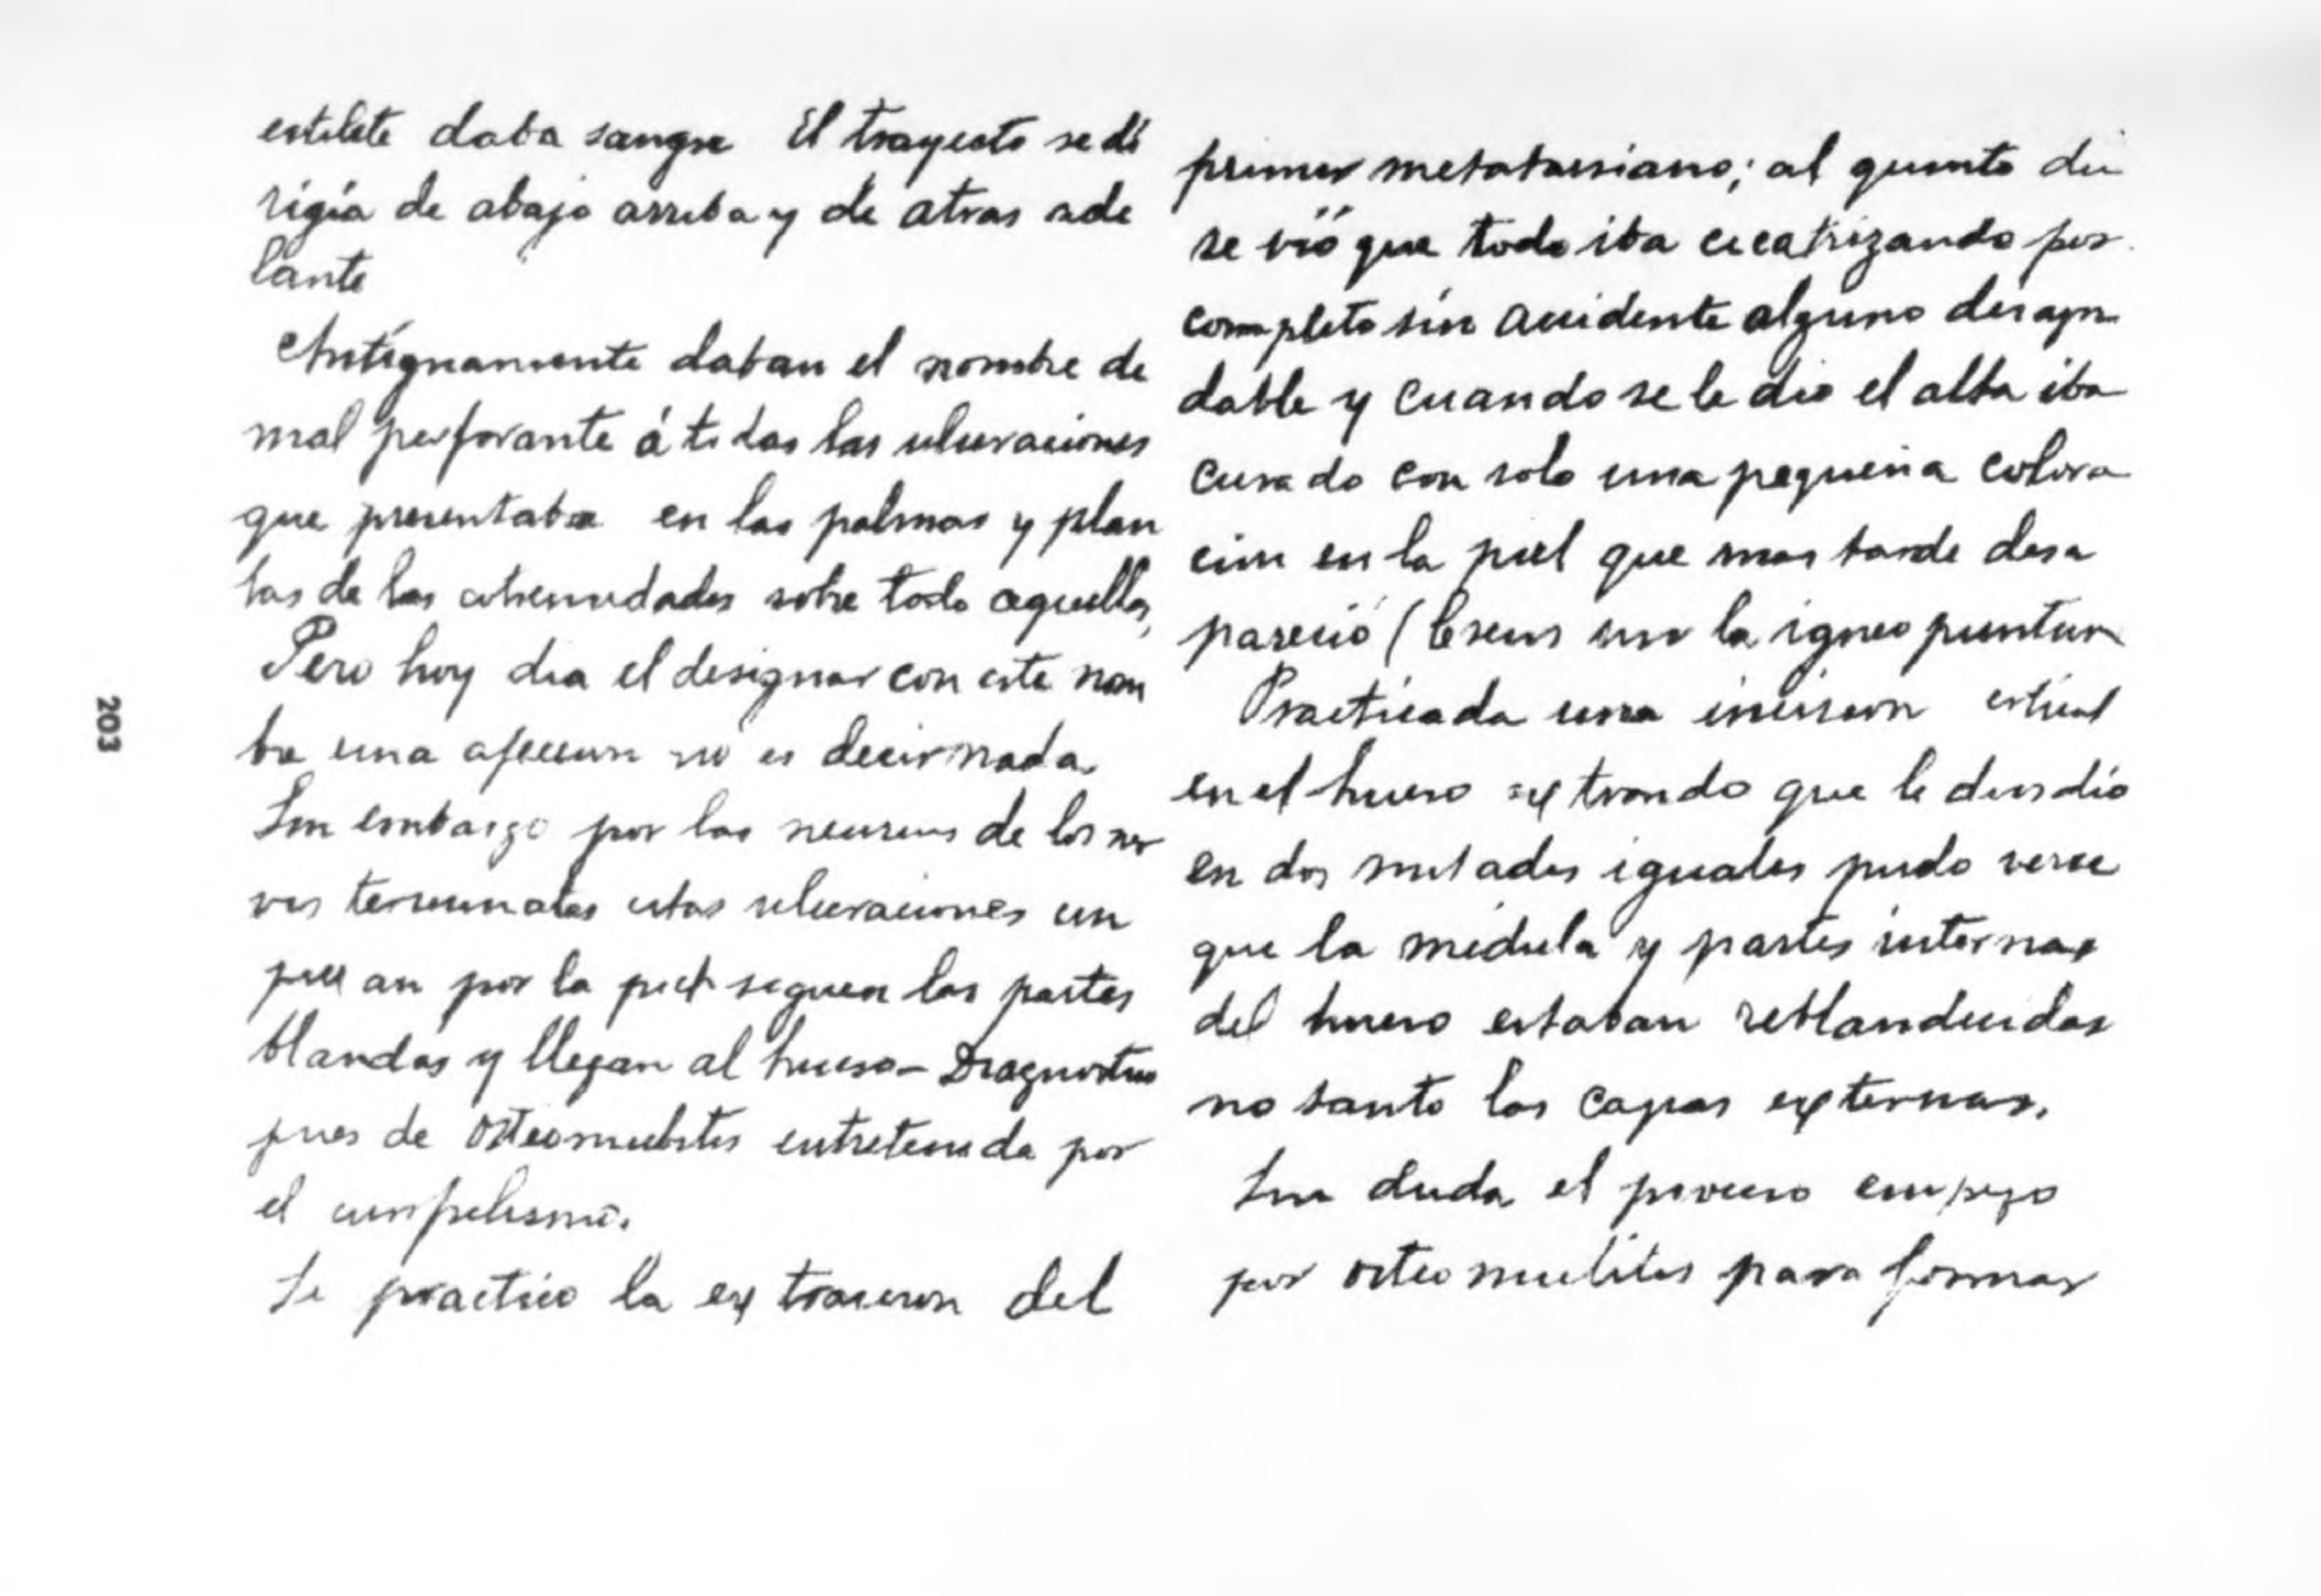 estilete daba sangre El trayecto se di
rigia de abajo arriba y de atras ade
lante
Antiguamente daban el nombre de
mal perforante á todas las ulceraciones
que presentaba en las palmas y plan
tas de las extremidades sobre todo aquellas,
Pero hoy dia el designar con este nom
bre una afeccion no es decir nada.
Sin embargo por las neurosis de los ner
vios terminales estas ulceraciones em
piezan por la piel siguen las partes
blandas y llegan al hueso - Diagnostico
pues de osteomielitis entretenida por
el
Se practico la extraccion del
primer metatarsiano; al quinto dia
se vió que todo iba cicatrizando por
completo sin accidente alguno desagra
dable y cuando se le dio el alta iba
curado con solo una pequeña colora
cion en la piel que mas tarde desa
pareció ( la igneo puntura
Practicada una incision
en el hueso extraido que le dividió
en dos mitades iguales pudo verse
que la médula y partes internas
del hueso estaban reblandecidas
no tanto las capas externas.
Sin duda el proceso empezo
por osteomielitis para formar
203